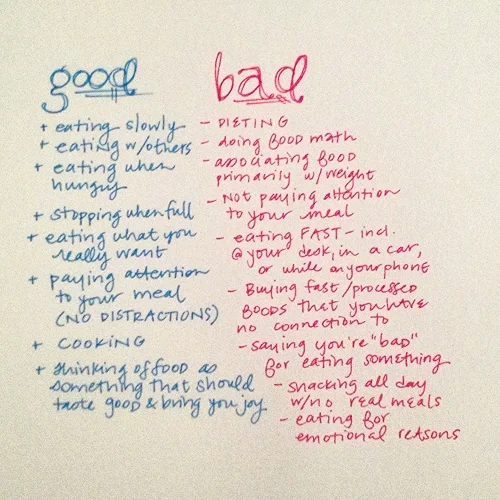 good
+ eating slowly
+ eating w/others
+ eating when
hungry
+ stopping when full
+ eating what you
really want
+ paying attention
to your meal
(NO DISTRACTIONS)
+ COOKING
+ thinking of food as
something that should
taste good & bring you joy
bad
- DIETING
- doing food math
- associating food
primarily w/weight
- Not paying attention
to your meal
- eating FAST - incl.
@ your desk, in a car,
or while on your phone
- Buying fast/processed
foods that you have
no connection to
- saying you're "bad"
for eating something
- snacking all day
w/no real meals
- eating for
emotional reasons